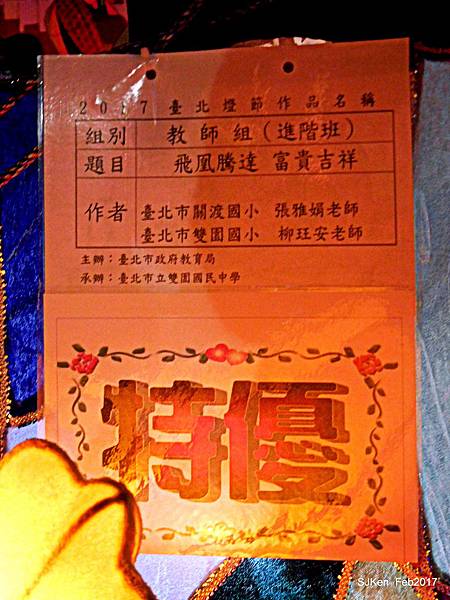 2017臺北燈節作品名稱
組別 教師組(進階班)
題目 飛凰騰達 富貴吉祥
作者 臺北市關渡國小 張雅娟老師
臺北市雙園國小 柳玨安老師
主辦：臺北市政府教育局
承辦：臺北市立雙園國民中學
特優
SJKen Feb2017